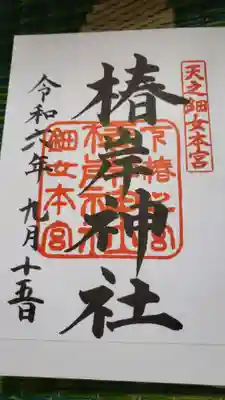 天之細女本宮
椿岸神社
令和六年 九月 十五日
細女本宮
椿岸神社